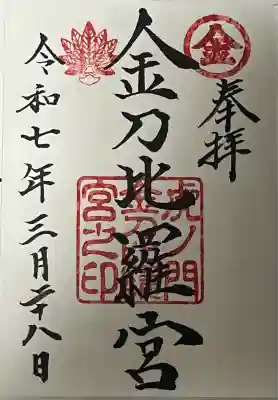 奉拝
金
金刀比羅宮
虎ノ門
金刀比羅
宮之印
令和七年三月二十八日